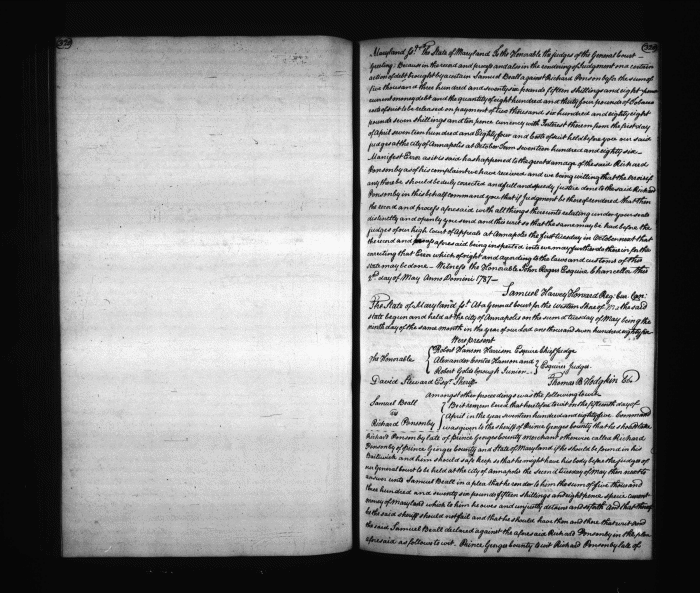 Maryland sct. The State of Maryland To the Honorable the judges of the General Court
Greeting: Because in the record and process and also in the rendering of Judgement on a certain
action of debt brought by a certain Samuel Beall against Richard Ponsonby for the sum of
five thousand three hundred and seventy six pounds fifteen shillings and eight pence
current money debt and the quantity of eight hundred and thirty four pounds of Tobacco
costs of suit to be released on payment of two thousand six hundred and eighty eight
pounds seven shillings and ten pence currency with Interest thereon from the first day
of April seventeen hundred and Eighty four and Costs of suit held before you our said
judges at the city of Annapolis at October Term seventeen hundred and eighty six
Manifest Error as it is said has happened to the great damage of the said Richard
Ponsonby as of his complaint we have received and we being willing that the error if
any there be should be duly corrected and full and speedy justice done to the said Richard
Ponsonby in this behalf command you that if judgment be thereof rendered that then
the record and process aforesaid with all things thereunto relating under your seals
distinctly and openly you send and this writ so that the same may be had before the
judges of our high Court of Appeals at Annapolis the first tuesday in October next that
the record and process aforesaid being inspected into we may further do therein for the
correcting that Error which of right and according to the laws and customs of this
state may be done — Witness the Honourable John Rogers Esquire Chancellor this
2d day of May Anno Domini 1787 —
Samuel Harvey Howard Reg: Cur: Can:
The State of Maryland sct. At a General Court for the western Shore of the said
state begun and held at the city of Annapolis on the second tuesday of May being the
ninth day of the same month in the year of our Lord one thousand seven hundred eighty
Were present
The Honorable { Robert Hanson Harrison Esquire Chief Judge
Alexander Contee Hanson and
Robert Goldsborough Junior } Esquires Judges
David Steward Esqr. Sheriff Thomas B. Hodgkin Clk
Amongst other proceedings was the following to wit
Samuel Beall { Be it remembered that heretofore to wit on the fifteenth day of
vs April in the year seventeen hundred and eighty five Command
Richard Ponsonby was given to the sheriff of Prince Georges County that he should take
Richard Ponsonby late of Prince Georges County merchant otherwise called Richard
Ponsonby of Prince Georges County and State of Maryland if he should be found in his
Bailiwick and him should safe keep so that he might have his body before the judges of
our General Court to be held at the city of Annapolis the second tuesday of May then next to
answer unto Samuel Beall in a plea that he render to him the sum of five thousand
three hundred and seventy six pounds fifteen shillings and eight pence specie current
money of Maryland which to him he owes and unjustly detains and so forth And that thereof
he the said sheriff should not fail and that he should have then and there that writ and
the said Samuel Beall declared against the aforesaid Richard Ponsonby in the plea
aforesaid as follows to wit. Prince Georges County to wit Richard Ponsonby late of